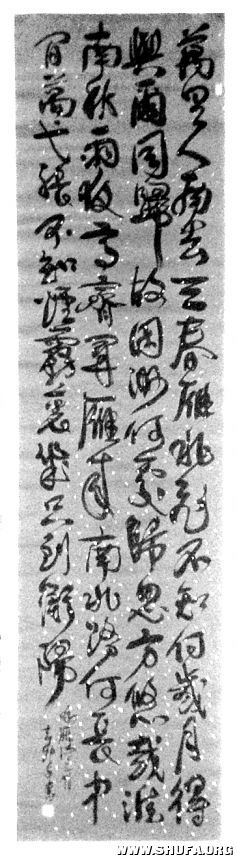 萬里人南去三春雁北飛不知何歲月得
與爾同歸故園渺何處歸思方悠哉淮
南秋雨夜高齋聞雁來南北路何長中
間萬弋張不知煙霧裏幾只到衡陽
WWW.SHUFA.ORG